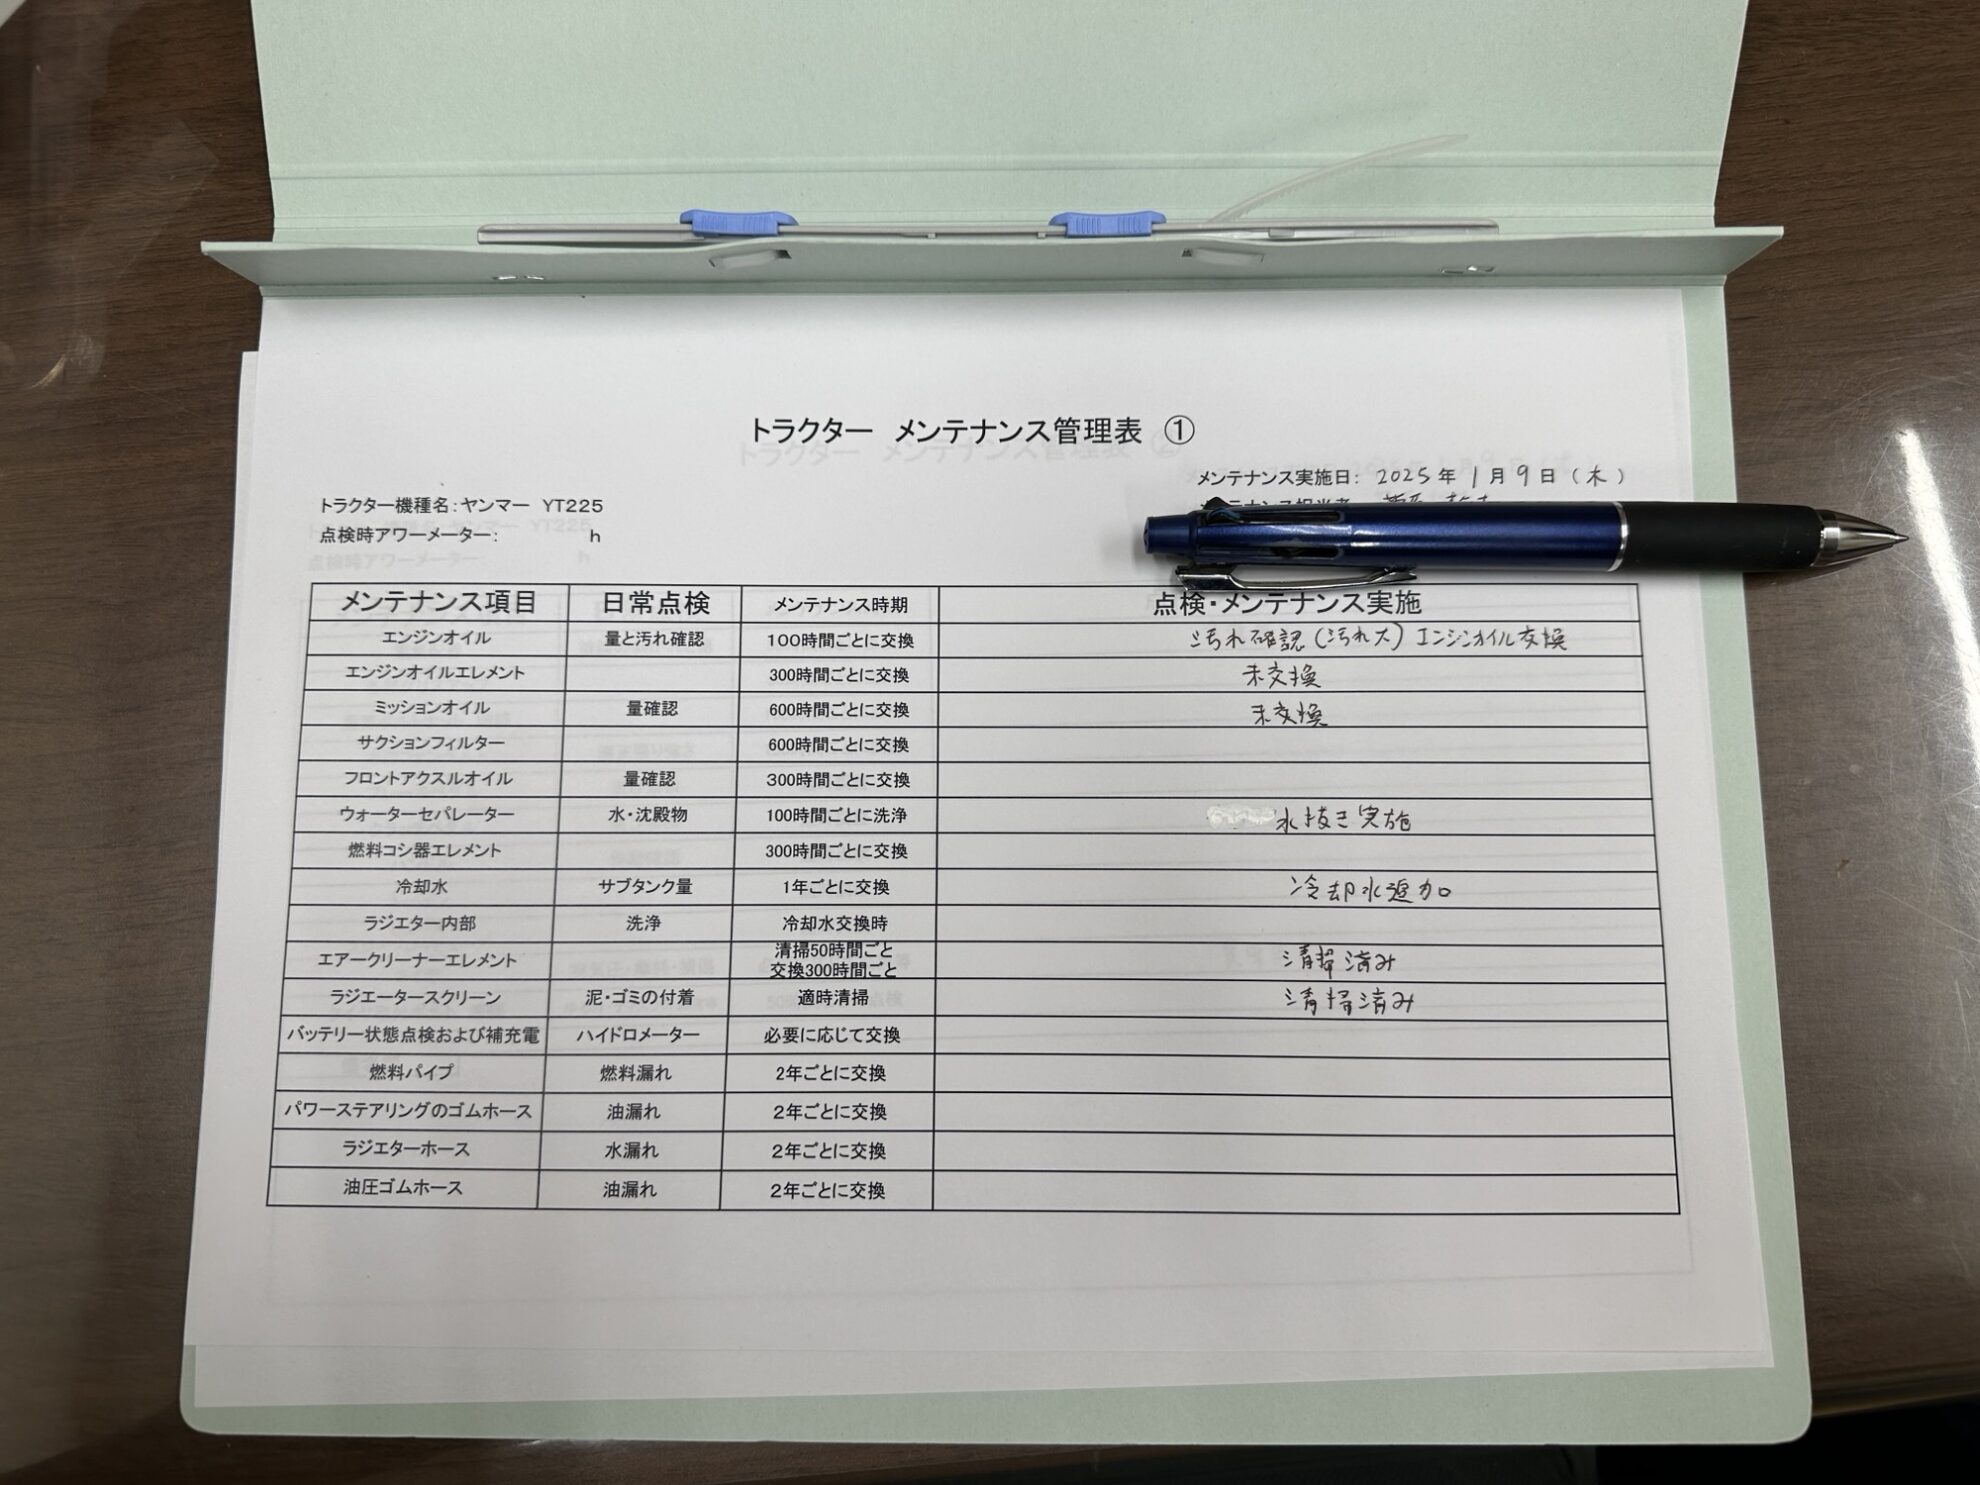 トラクター メンテナンス管理表 ①
メンテナンス実施日: 2025 年 1 月 9 日 (木)
トラクター機種名:ヤンマー YT225
点検時アワーメーター: h
メンテナンス項目 日常点検 メンテナンス時期 点検・メンテナンス実施
エンジンオイル 量と汚れ確認 100時間ごとに交換 汚れ確認(汚れ大) エンジンオイル交換
エンジンオイルエレメント 300時間ごとに交換 未交換
ミッションオイル 量確認 600時間ごとに交換 未交換
サクションフィルター 600時間ごとに交換
フロントアクスルオイル 量確認 300時間ごとに交換
ウォーターセパレーター 水・沈殿物 100時間ごとに洗浄 水抜き実施
燃料コシ器エレメント 300時間ごとに交換
冷却水 サブタンク量 1年ごとに交換 冷却水追加
ラジエター内部 洗浄 冷却水交換時
エアークリーナーエレメント 清掃50時間ごと 交換300時間ごと 清掃済み
ラジエータースクリーン 泥・ゴミの付着 適時清掃 清掃済み
バッテリー状態点検および補充電 ハイドロメーター 必要に応じて交換
燃料パイプ 燃料漏れ 2年ごとに交換
パワーステアリングのゴムホース 油漏れ 2年ごとに交換
ラジエターホース 水漏れ 2年ごとに交換
油圧ゴムホース 油漏れ 2年ごとに交換